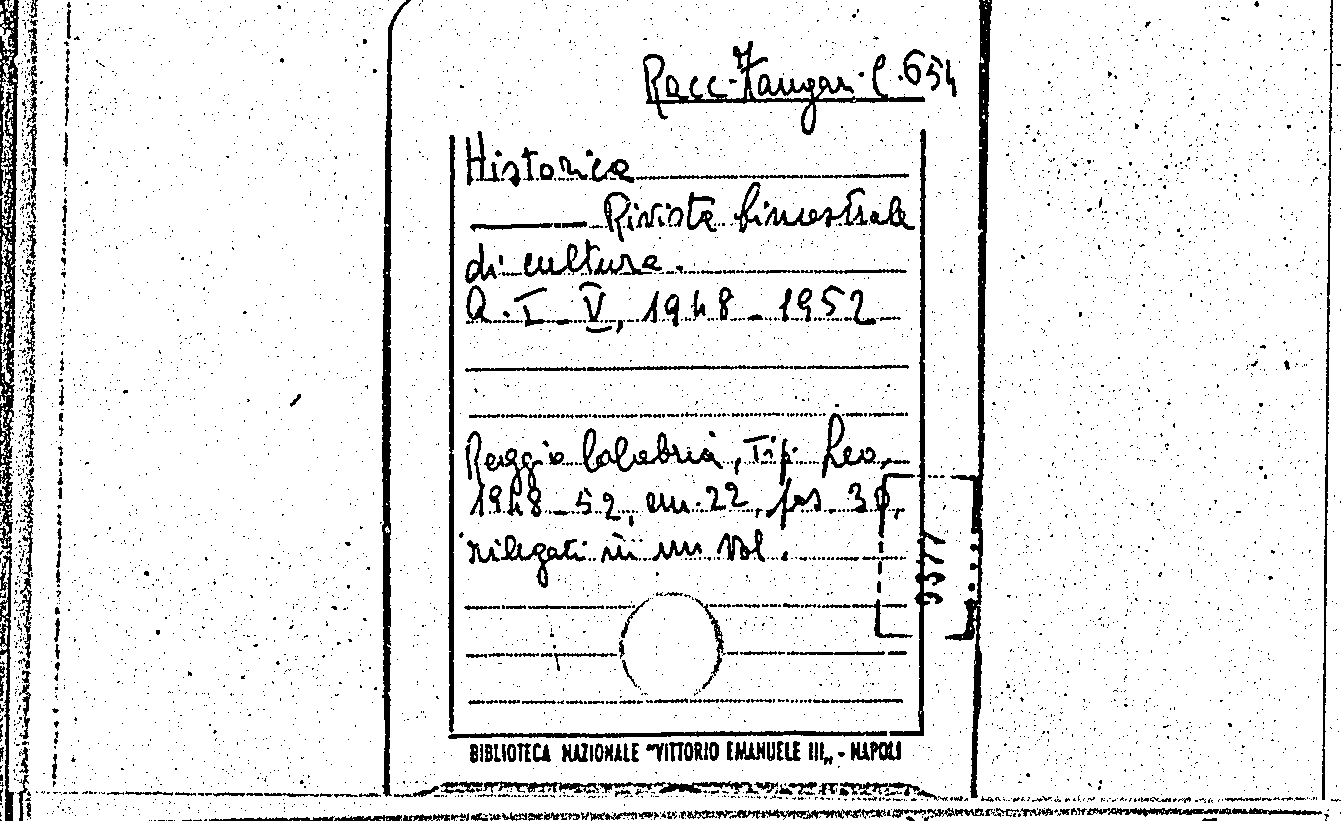 Racc. Zangari C. 654
Historica
Rivista bimestrale
di cultura.
A. I - V, 1948 - 1952
Reggio Calabria, Tip. Leo,
1948 - 52, cm. 22, fas. 30,
rilegati in un vol.
9377
BIBLIOTECA NAZIONALE "VITTORIO EMANUELE III„ - NAPOLI